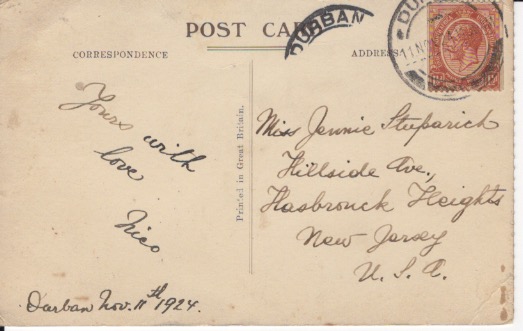 POST CARD
DURBAN
CORRESPONDENCE
ADDRESS
11 NO
Yours with
love
Nico
Durban Nov. 11th 1924.
Printed in Great Britain.
Miss Jennie Stuparich
Hillside Ave.,
Hasbrouck Heights
New Jersey
U. S. A.